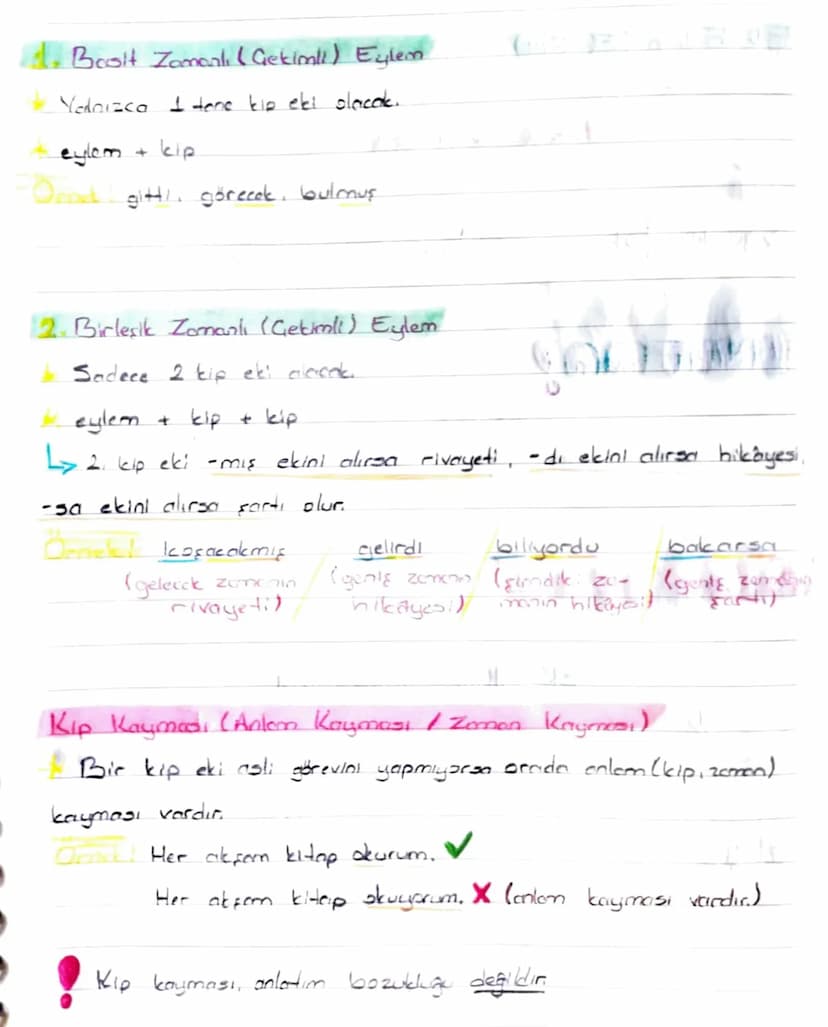 1. Basit Zamanlı (Çekimli) Eylem
Yalnızca 1 tane kip eki olacak.
eylem + kip
Örnek: gitti, görecek, bulmuş
2. Birleşik Zamanlı (Çekimli) Eylem
Sadece 2 kip eki alacak.
eylem + kip + kip
↳ 2. kip eki -mış ekini alırsa rivayeti, -dı ekini alırsa hikâyesi,
-sa ekini alırsa şartı olur.
Örnek: koşacakmış / gelirdi / biliyordu / bakarsa
(gelecek zamanın / (geniş zamanın / (şimdiki za- / (geniş zamanın
rivayeti) / hikâyesi) / manın hikâyesi) / şartı)
Kip Kayması (Anlam Kayması / Zaman Kayması)
Bir kip eki asli görevini yapmıyorsa orada anlam (kip, zaman)
kayması vardır.
Örnek: Her akşam kitap okurum. ✓
Her akşam kitap okuyorum. X (anlam kayması vardır.)
! Kip kayması, anlatım bozukluğu değildir.